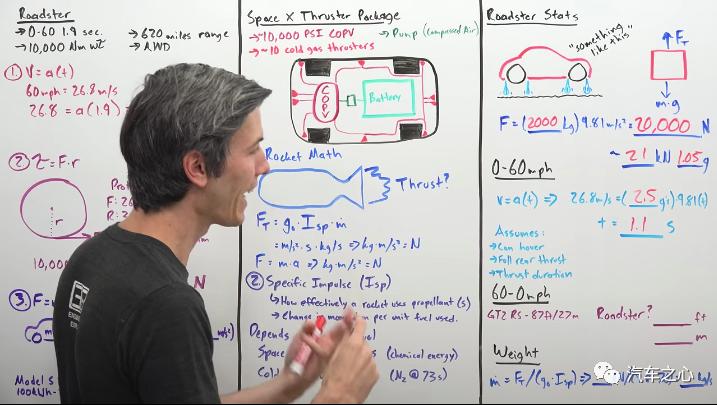 Roadster
→ 0-60 1.9 sec.
→ 10,000 Nm wt
→ 620 miles range
→ AWD
① V = a(t)
60mph = 26.8 m/s
26.8 = a(1.9)
② τ = F·r
r
10,000
N
③
Model S
100kWh-
Space X Thruster Package
→ ~10,000 PSI COPV
→ ~10 cold gas thrusters
→ Pump (Compressed Air)
COPV
Battery
Rocket Math
Thrust?
F_T = g₀·Isp·ṁ
= m/s²·s·kg/s ⇒ kg·m/s² = N
F = m·a ⇒ kg·m/s² = N
② Specific Impulse (Isp)
↳ How effectively a rocket uses propellant (s)
→ Change in momentum per unit fuel used.
Depends
Space
(chemical energy)
Cold
(N₂ @ 73s)
Roadster Stats
"something like this"
F_T
m·g
F = (2000 kg) 9.81 m/s² = 20,000 N
~ 21 kN 1.05g
0-60mph
v = a(t) ⇒ 26.8m/s = (2.5 g's)·9.81(t)
t = 1.1 s
Assumes:
→ Can hover
→ Full rear thrust
→ Thrust duration
60-0mph
GT2 RS - 87ft/27m
Roadster?
ft
m
Weight
ṁ = F_T/(g₀·Isp) ⇒
kg/s
汽车之心